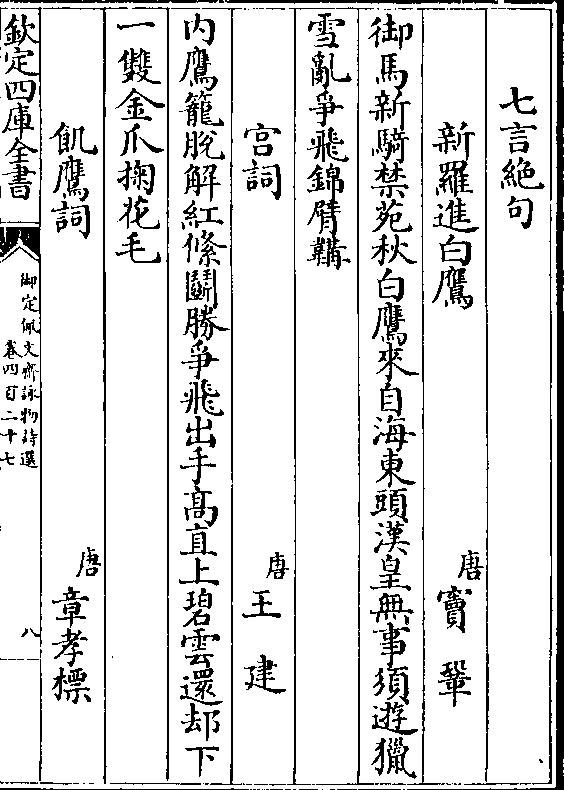 七言絶句
新羅進白鷹
唐
竇鞏
御馬新騎禁苑秋白鷹來自海東頭漢皇無事須遊獵
雪亂爭飛錦臂鞲
宫詞
唐
王建
内鷹籠脫解紅絛鬭勝爭飛出手髙直上碧雲還却下
一雙金爪掬花毛
飢鷹詞
唐
章孝標
欽定四庫全書
御定佩文齋詠物詩選
卷四百二十七
八